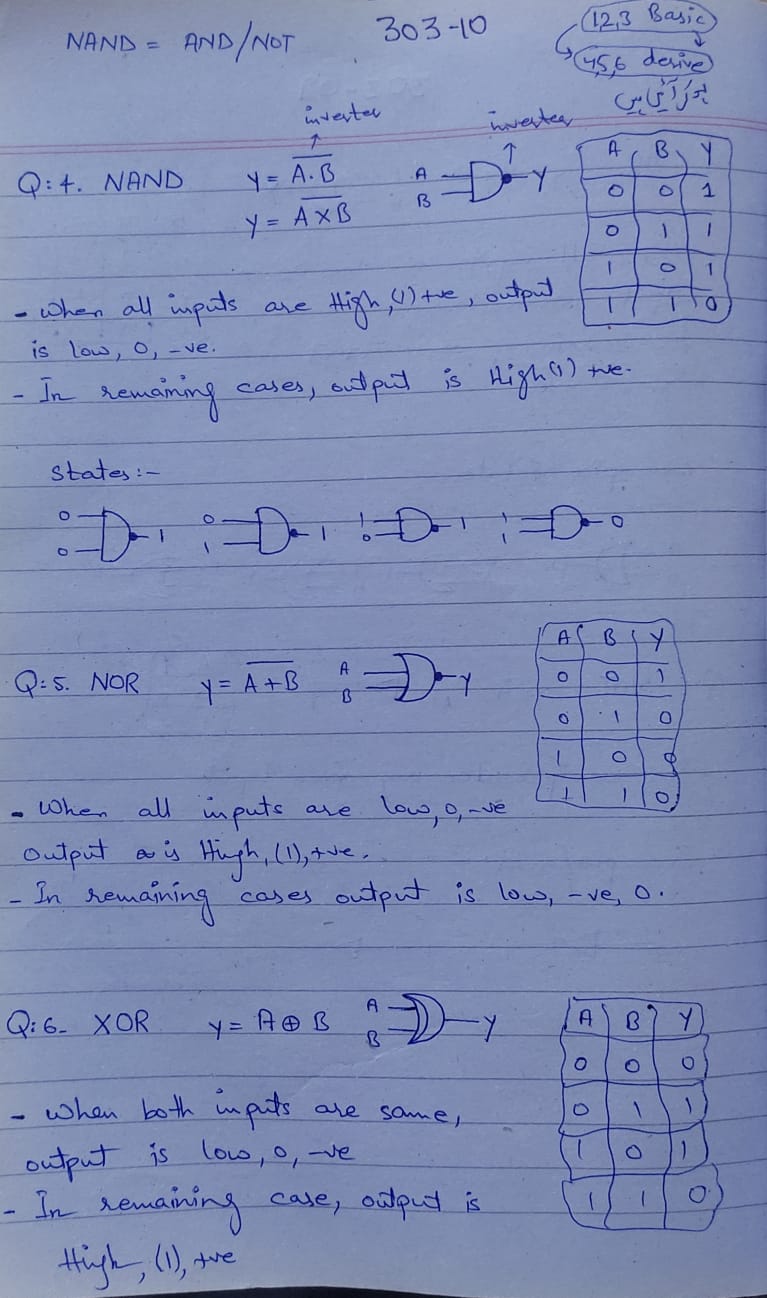 NAND = AND/NOT 303-10 1,2,3 Basic
4,5,6 desive
inverter inverter
Q:4. NAND Y = A̅.̅B̅ A B Y
Y = A̅×̅B̅
A B Y
0 0 1
0 1 1
1 0 1
1 1 0
- When all inputs are High,(1) +ve, output
is low, 0, -ve.
- In remaining cases, output is High(1) +ve.
States:-
0 0 1 0 1 1 1 0 1 1 1 0
Q:5. NOR Y = A̅+̅B̅ A B Y
A B Y
0 0 1
0 1 0
1 0 0
1 1 0
- When all inputs are low, 0, -ve
Output is High, (1), +ve.
- In remaining cases output is low, -ve, 0.
Q:6- XOR Y = A ⊕ B A B Y
A B Y
0 0 0
0 1 1
1 0 1
1 1 0
- When both inputs are same,
output is low, 0, -ve
- In remaining case, output is
High, (1), +ve